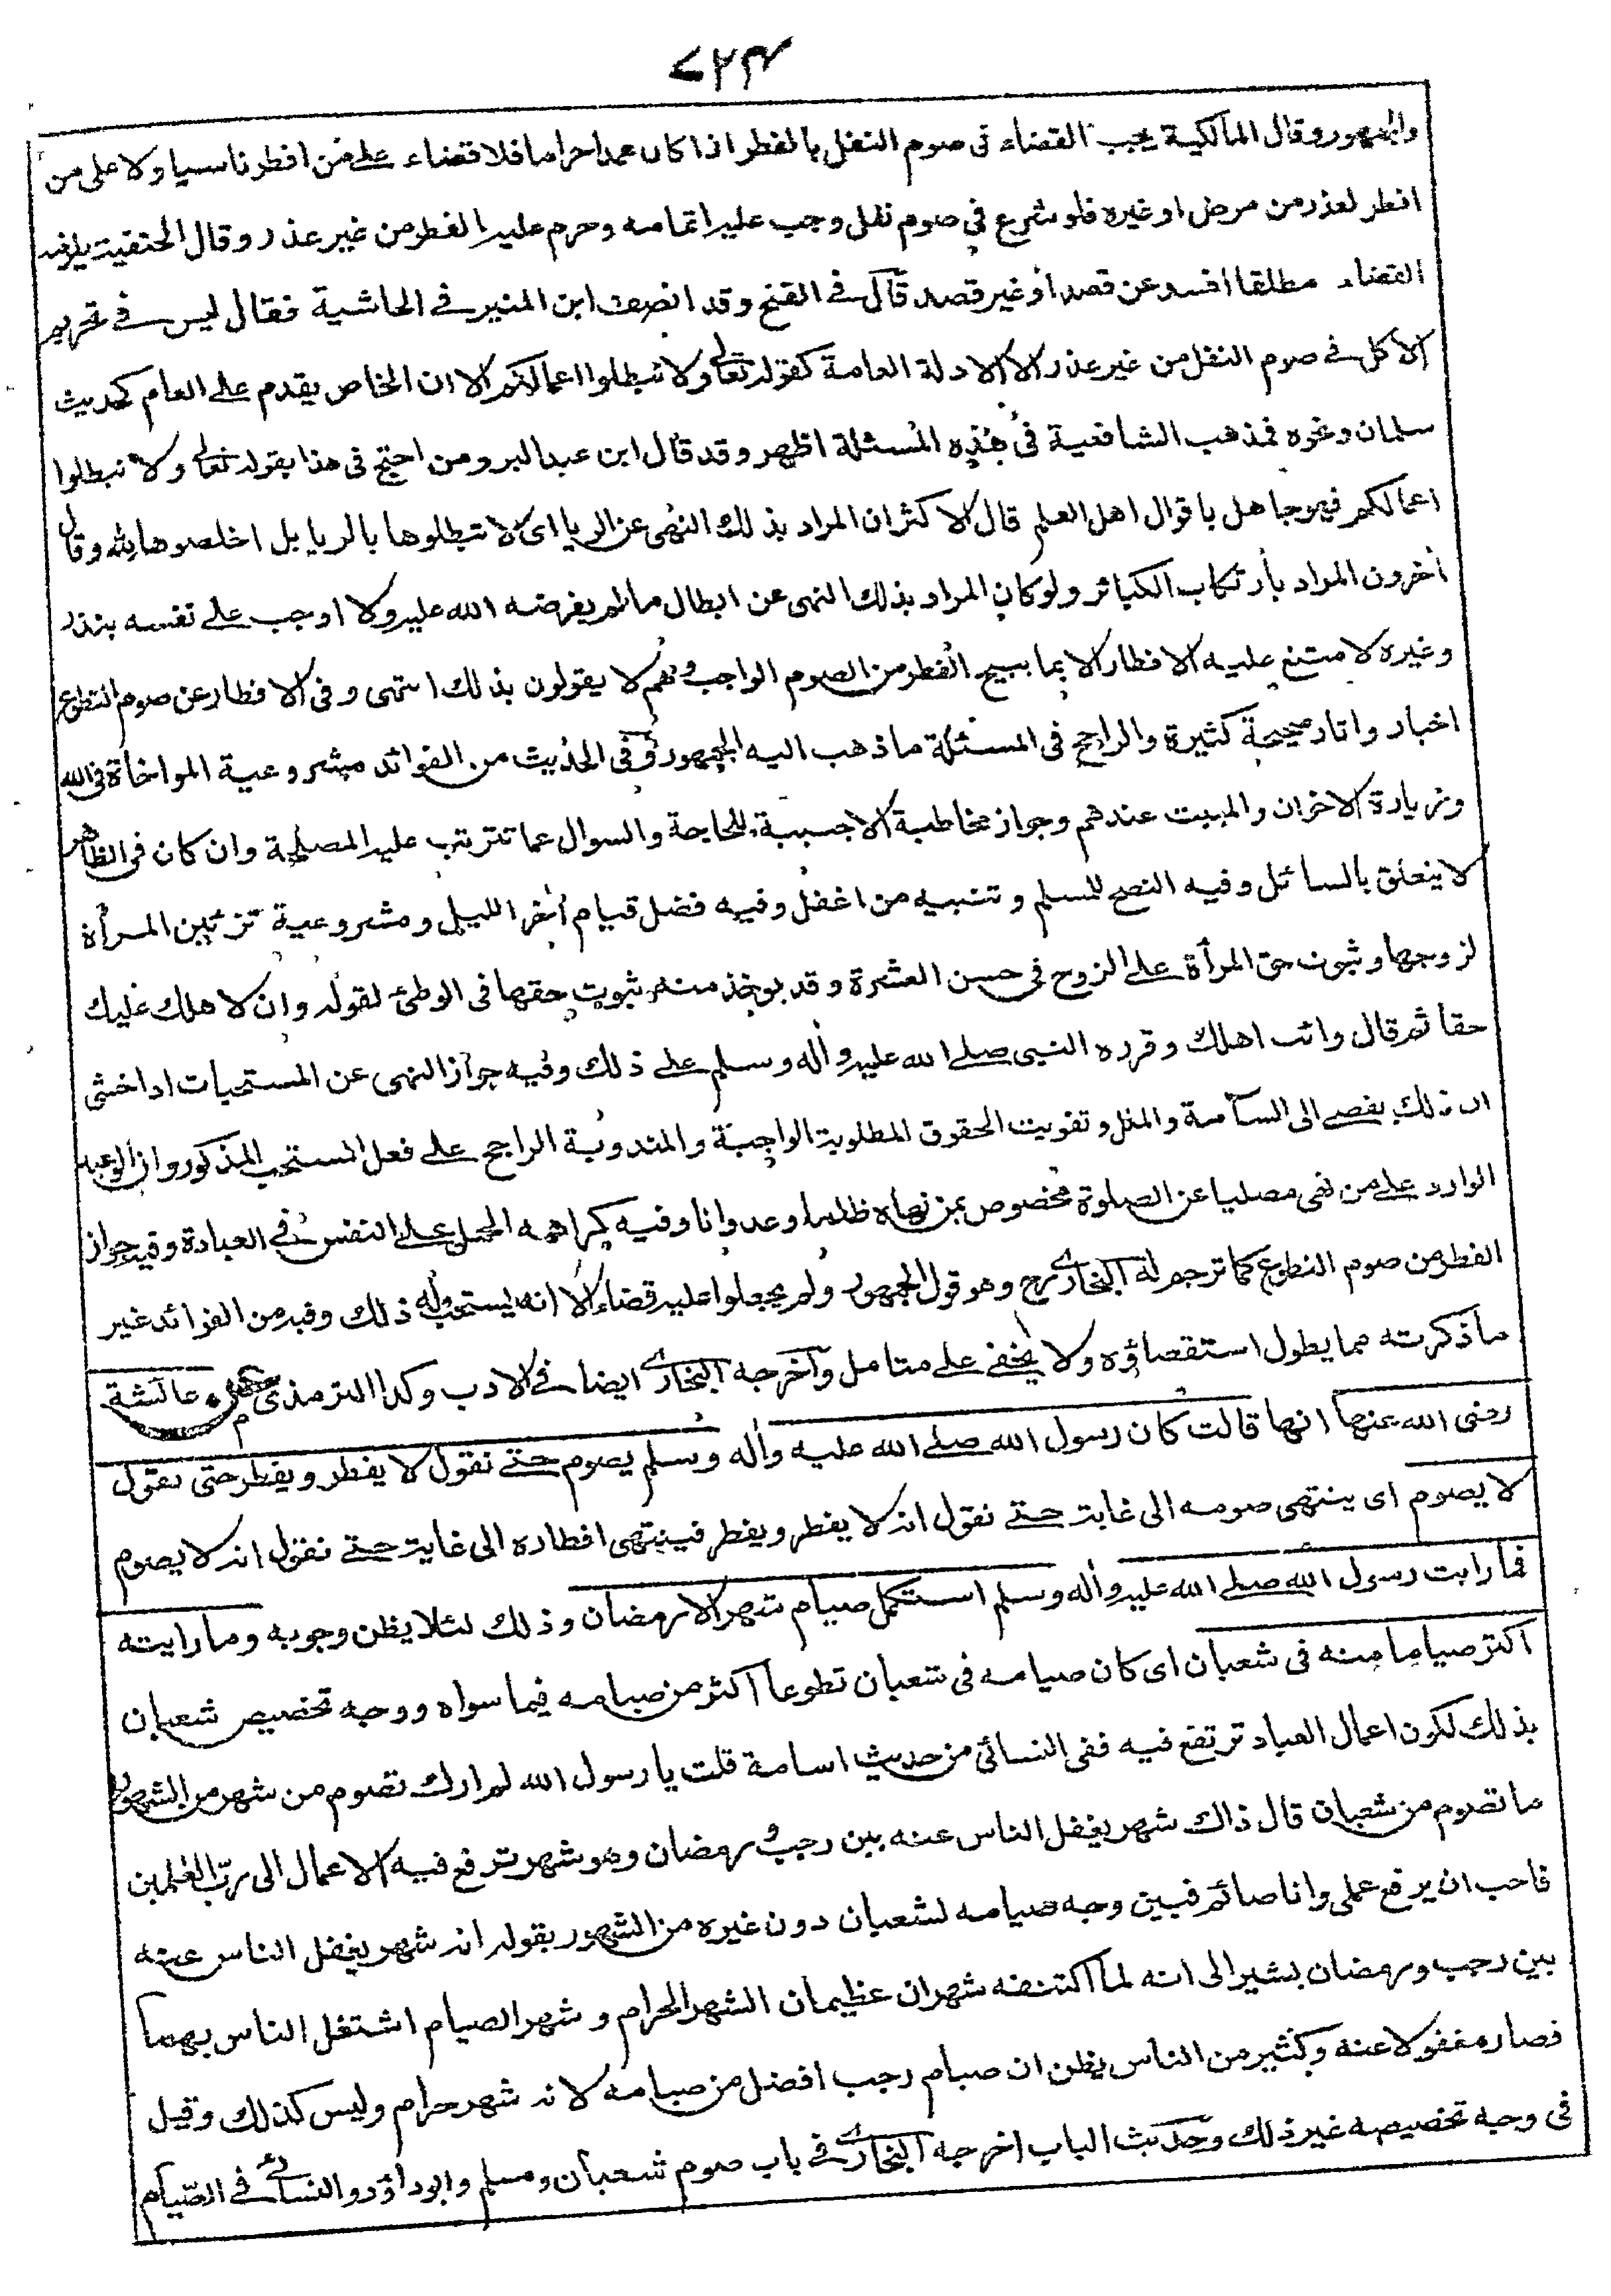 ٧٢٣
والجمهور وقال المالكية يجب القضاء فى صوم النفل بالفطر اذا كان عمدا حراما فلا قضاء على من افطر ناسيا ولا على من
افطر لعذر من مرض او غيره فلو شرع فى صوم نفل وجب عليه اتمامه وحرم عليه الفطر من غير عذر وقال الحنفية يلزمه
القضاء مطلقا افسد عن قصد أو غير قصد قال فى الفتح وقد انصف ابن المنير فى الحاشية فقال ليس فى تحريم
الاكل فى صوم النفل من غير عذر الا الادلة العامة كقوله تعالى ولا تبطلوا اعمالكم الا ان الخاص يقدم على العام كحديث
سلمان ونحوه فمذهب الشافعية فى هذه المسئلة اظهر وقد قال ابن عبد البر ومن احتج فى هذا بقوله تعالى ولا تبطلوا
اعمالكم فهو جاهل باقوال اهل العلم قال الاكثر ان المراد بذلك النهى عن الريا اى لا تبطلوها بالريا بل اخلصوها لله وقال
أخرون المراد بأرتكاب الكبائر ولو كان المراد بذلك النهى عن ابطال مالم يفرضه الله عليه ولا اوجب على نفسه بنذر
وغيره لا متنع عليه الافطار الا بما يبيح الفطر من الصوم الواجب وهم لا يقولون بذلك انتهى وفى الافطار عن صوم التطوع
اخبار واثار صحيحة كثيرة والراجح فى المسئلة ما ذهب اليه الجمهور وفى الحديث من الفوائد مشروعية المواخاة فى الله
وزيارة الاخوان والمبيت عندهم وجواز مخاطبة الاجنبية للحاجة والسوال عما تترتب عليه المصلحة وان كان فى الظاهر
لا يتعلق بالسائل وفيه النصح للمسلم وتنبيه من اغفل وفيه فضل قيام أخر الليل ومشروعية تزئين المرأة
لزوجها وثبوت حق المرأة على الزوج فى حسن العشرة وقد يوخذ منه ثبوت حقها فى الوطئ لقوله وان لاهلك عليك
حقا ثم قال وائت اهلك وقرره النبى صلى الله عليه وأله وسلم على ذلك وفيه جواز النهى عن المستحبات اذا خشى
ان ذلك يفضى الى السآمة والملل وتفويت الحقوق المطلوبة الواجبة والمندوبة الراجح على فعل المستحب المذكور وان الوعيد
الوارد على من نهى مصليا عن الصلوة مخصوص بمن نهاه ظلما وعدوانا وفيه كراهة الحمل على النفس فى العبادة وفيه جواز
الفطر من صوم التطوع كما ترجم له البخارى رح وهو قول الجمهور ولم يجعلوا عليه قضاء الا انه يستحب له ذلك وفيه من الفوائد غير
ما ذكرته مما يطول استقصاؤه ولا يخفى على متامل وأخرجه البخارى ايضا فى الادب وكذا الترمذى عن عائشة
رضى الله عنها انها قالت كان رسول الله صلى الله عليه وأله وسلم يصوم حتى نقول لا يفطر ويفطر حتى نقول
لا يصوم اى ينتهى صومه الى غاية حتى نقول انه لا يفطر ويفطر فينتهى افطاره الى غاية حتى نقول انه لا يصوم
فما رايت رسول الله صلى الله عليه وأله وسلم استكمل صيام شهر الا رمضان وذلك لئلا يظن وجوبه وما رايته
اكثر صياما منه فى شعبان اى كان صيامه فى شعبان تطوعا اكثر من صيامه فيما سواه ووجه تخصيص شعبان
بذلك لكون اعمال العباد ترتفع فيه ففى النسائى من حديث اسامة قلت يا رسول الله لم ارك تصوم من شهر من الشهور
ما تصوم من شعبان قال ذاك شهر يغفل الناس عنه بين رجب ورمضان وهو شهر ترفع فيه الاعمال الى رب العلمين
فاحب ان يرفع عملى وانا صائم فبين وجه صيامه لشعبان دون غيره من الشهور بقوله انه شهر يغفل الناس عنه
بين رجب ورمضان يشير الى انه لما اكتنفه شهران عظيمان الشهر الحرام وشهر الصيام اشتغل الناس بهما
فصار مغفولا عنه وكثير من الناس يظن ان صيام رجب افضل من صيامه لانه شهر حرام وليس كذلك وقيل
فى وجه تخصيصه غير ذلك وحديث الباب اخرجه البخارى فى باب صوم شعبان ومسلم وابو داؤد والنسائى فى الصيام